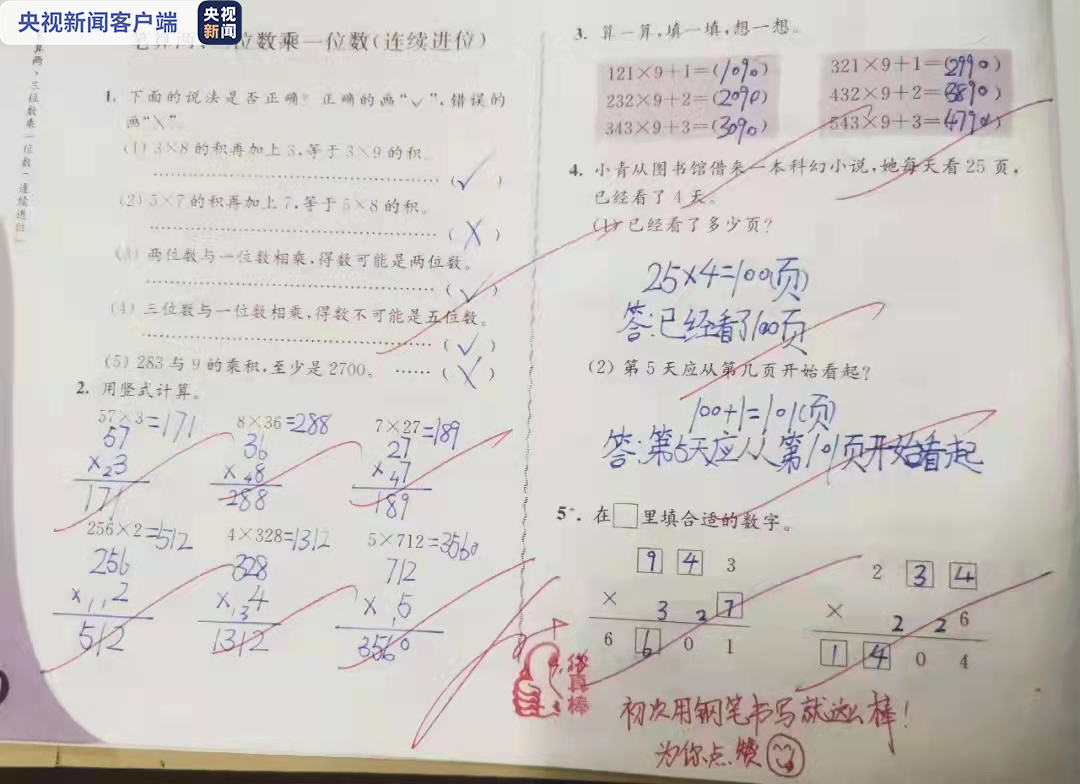 央视新闻客户端
央视新闻
笔算两、三位数乘一位数(连续进位)
1. 下面的说法是否正确？正确的画“✓”，错误的
画“╲”。
(1) 3×8的积再加上3,等于3×9的积。
(✓)
(2) 5×7的积再加上7,等于5×8的积。
(X)
(3) 两位数与一位数相乘,得数可能是两位数。
(✓)
(4) 三位数与一位数相乘,得数不可能是五位数。
(✓)
(5) 283与9的乘积,至少是2700。 …… (X)
2. 用竖式计算。
57×3=171 8×36=288 7×27=189
57 36 27
×₂3 ×₄8 ×₄7
171 288 189
256×2=512 4×328=1312 5×712=3560
256 328 712
×₁₁2 ×₁₃4 ×₁5
512 1312 3560
3. 算一算,填一填,想一想。
121×9+1=(1090) 321×9+1=(2990)
232×9+2=(2090) 432×9+2=(3890)
343×9+3=(3090) 543×9+3=(4790)
4. 小青从图书馆借来一本科幻小说,她每天看25页,
已经看了4天。
(1) 已经看了多少页?
25×4=100(页)
答:已经看了100页
(2) 第5天应从第几页开始看起?
100+1=101(页)
答:第5天应从第101页开始看起
5*. 在□里填合适的数字。
9 4 3 2 3 4
× 3 2 7 × 2 2 6
6 6 0 1 1 4 0 4
你真棒
初次用钢笔书写就这么棒!
为你点赞